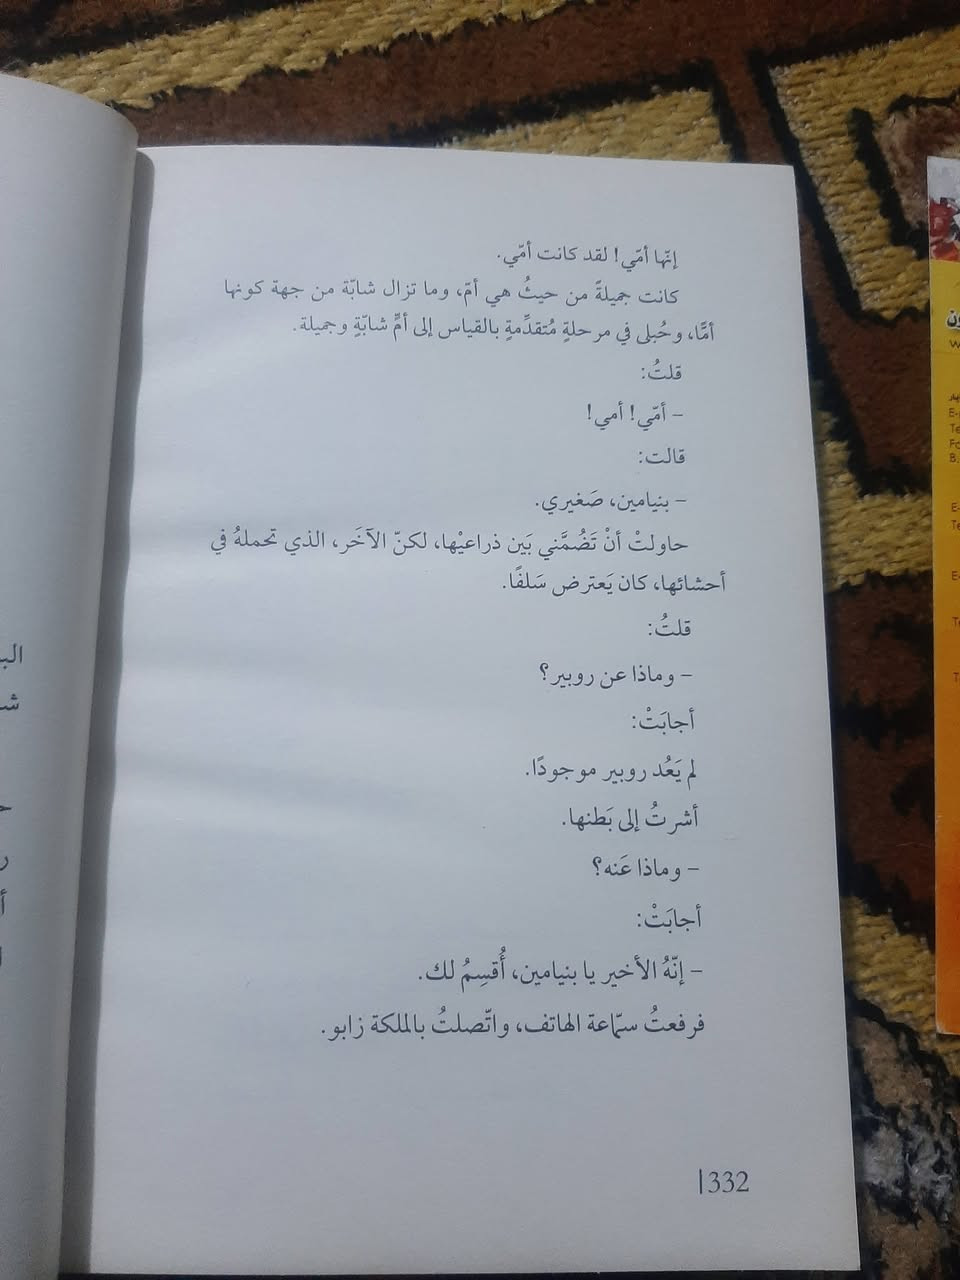 إنّها أمّي! لقد كانت أمّي.
كانت جميلةً من حيثُ هي أمّ، وما تزال شابّة من جهة كونها
أمًّا، وحُبلى في مرحلةٍ مُتقدِّمةٍ بالقياس إلى أمٍّ شابّةٍ وجميلة.
قلتُ:
– أمّي! أمي!
قالت:
– بنيامين، صَغيري.
حاولتْ أنْ تَضُمَّني بَين ذراعيْها، لكنّ الآخَر، الذي تحملهُ في
أحشائها، كان يَعترض سَلفًا.
قلتُ:
– وماذا عن روبير؟
أجابَتْ:
لم يَعُد روبير موجودًا.
أشرتُ إلى بَطنها.
– وماذا عَنه؟
أجابَتْ:
– إنّهُ الأخير يا بنيامين، أُقسِمُ لك.
فرفعتُ سمّاعة الهاتف، واتّصلتُ بالملكة زابو.
332|